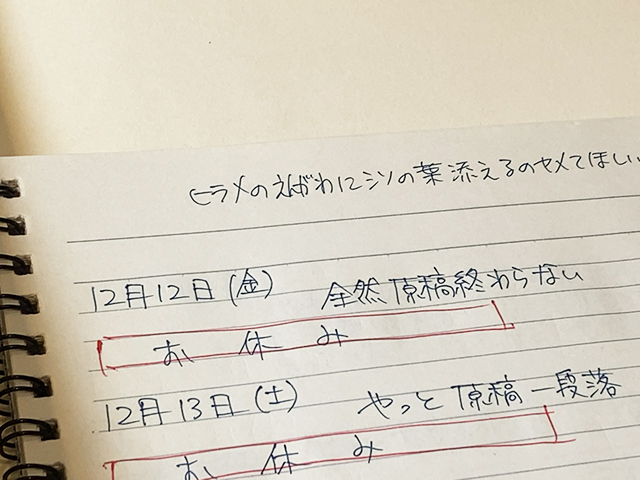 ヒラメのえがわにシソの葉添えるのヤメてほしい
12月12日(金) 全然原稿終わらない
お休み
12月13日(土) やっと原稿一段落
お休み